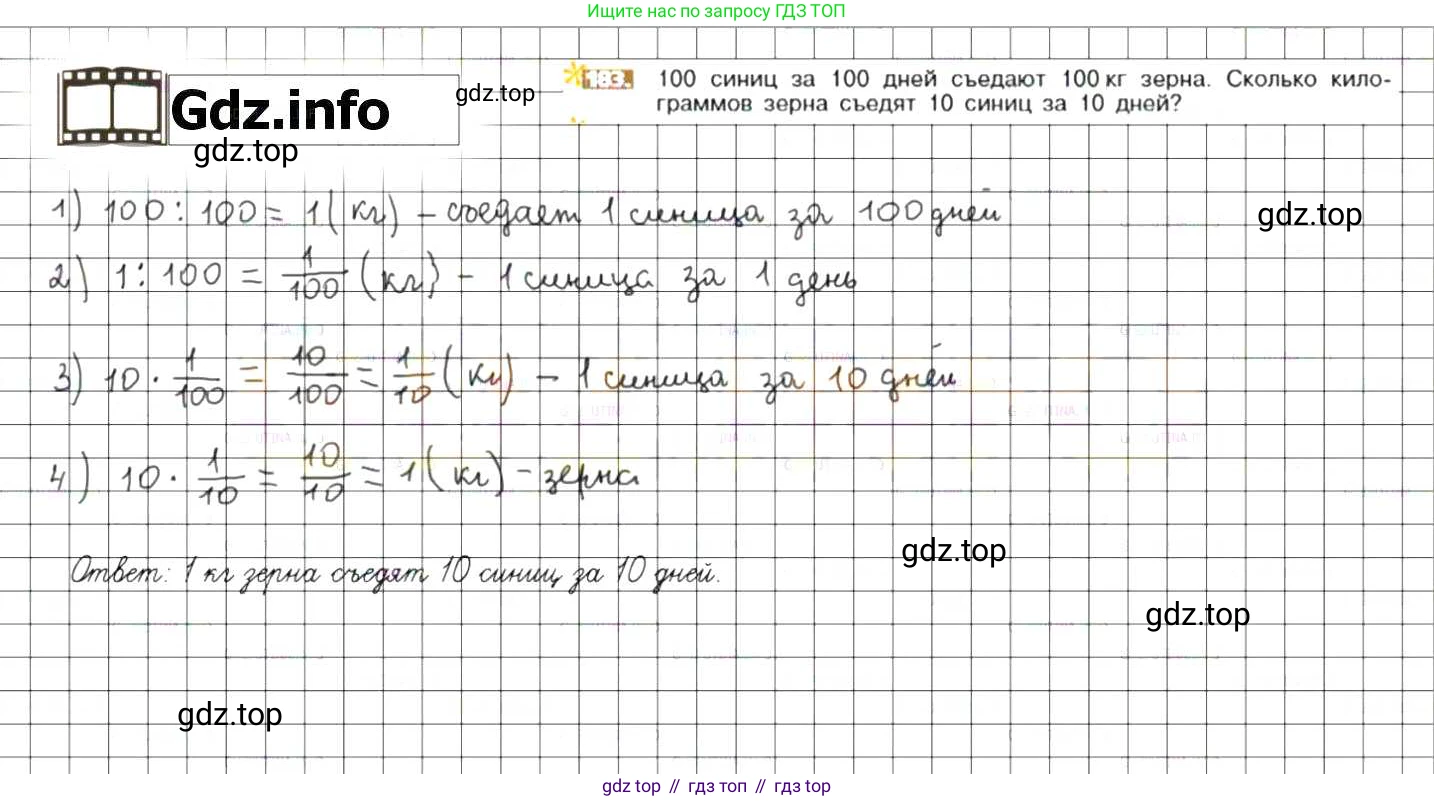 Ищите нас по запросу ГДЗ ТОП
Gdz.info
gdz.top
gdz.top
183. 100 синиц за 100 дней съедают 100 кг зерна. Сколько кило-
граммов зерна съедят 10 синиц за 10 дней?
1) 100 : 100 = 1 (кг) – съедает 1 синица за 100 дней
gdz.top
2) 1 : 100 = 1/100 (кг) – 1 синица за 1 день
3) 10 · 1/100 = 10/100 = 1/10 (кг) – 1 синица за 10 дней
4) 10 · 1/10 = 10/10 = 1 (кг) – зерна
gdz.top
Ответ: 1 кг зерна съедят 10 синиц за 10 дней.
gdz.top
gdz.top
gdz top // гдз топ // гдз top